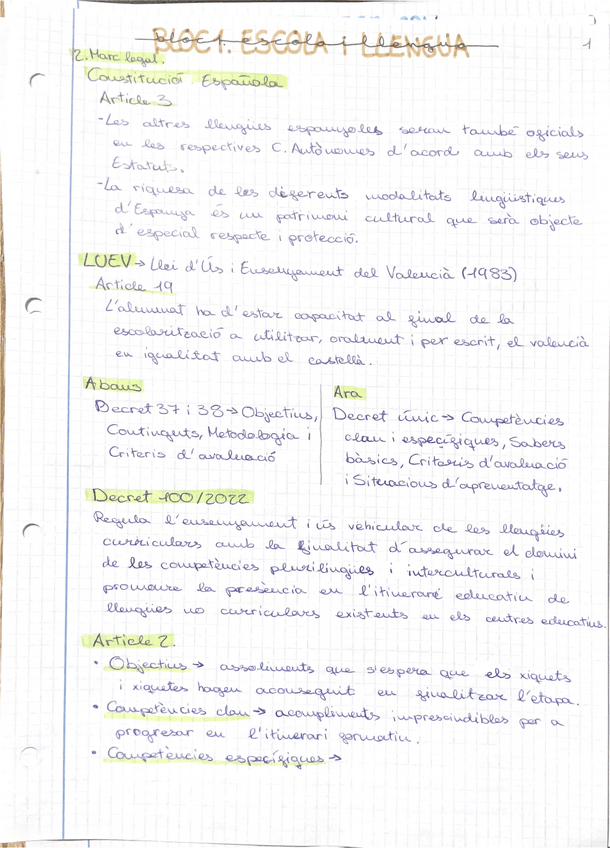 BLOC 1. ESCOLA i LLENGUA
bloc 1. escola i llengua
1
2. Marc legal.
Constitució Española
Article 3
-Les altres llengües espanyoles seran també oficials
en les respectives C. Autònomes d'acord amb els seus
Estatuts.
-La riquesa de les diferents modalitats lingüistiques
d'Espanya és un patrimoni cultural que serà objecte
d'especial respecte i protecció.
LUEV → Llei d'Ús i Ensenyament del Valencià (1983)
Article 19
L'alumnat ha d'estar capacitat al final de la
escolarització a utilitzar, oralment i per escrit, el valencià
en igualitat amb el castellà.
Abans
Decret 37 i 38 → Objectius,
Continguts, Metodologia i
Criteris d'avaluació
Ara
Decret únic → Competències
clau i específiques, Sabers
bàsics, Criteris d'avaluació
i Situacions d'aprenentatge.
Decret 100/2022
Regula l'ensenyament i ús vehicular de les llengües
curriculars amb la finalitat d'assegurar el domini
de les competències plurilingües i interculturals i
promoure la presència en l'itinerari educatiu de
llengües no curriculars existents en els centres educatius.
Article 2.
• Objectius → assoliments que s'espera que els xiquets
i xiquetes hagen aconseguit en finalitzar l'etapa.
• Competències clau → acompliments imprescindibles per a
progresar en l'itinerari formatiu.
• Competències específiques →